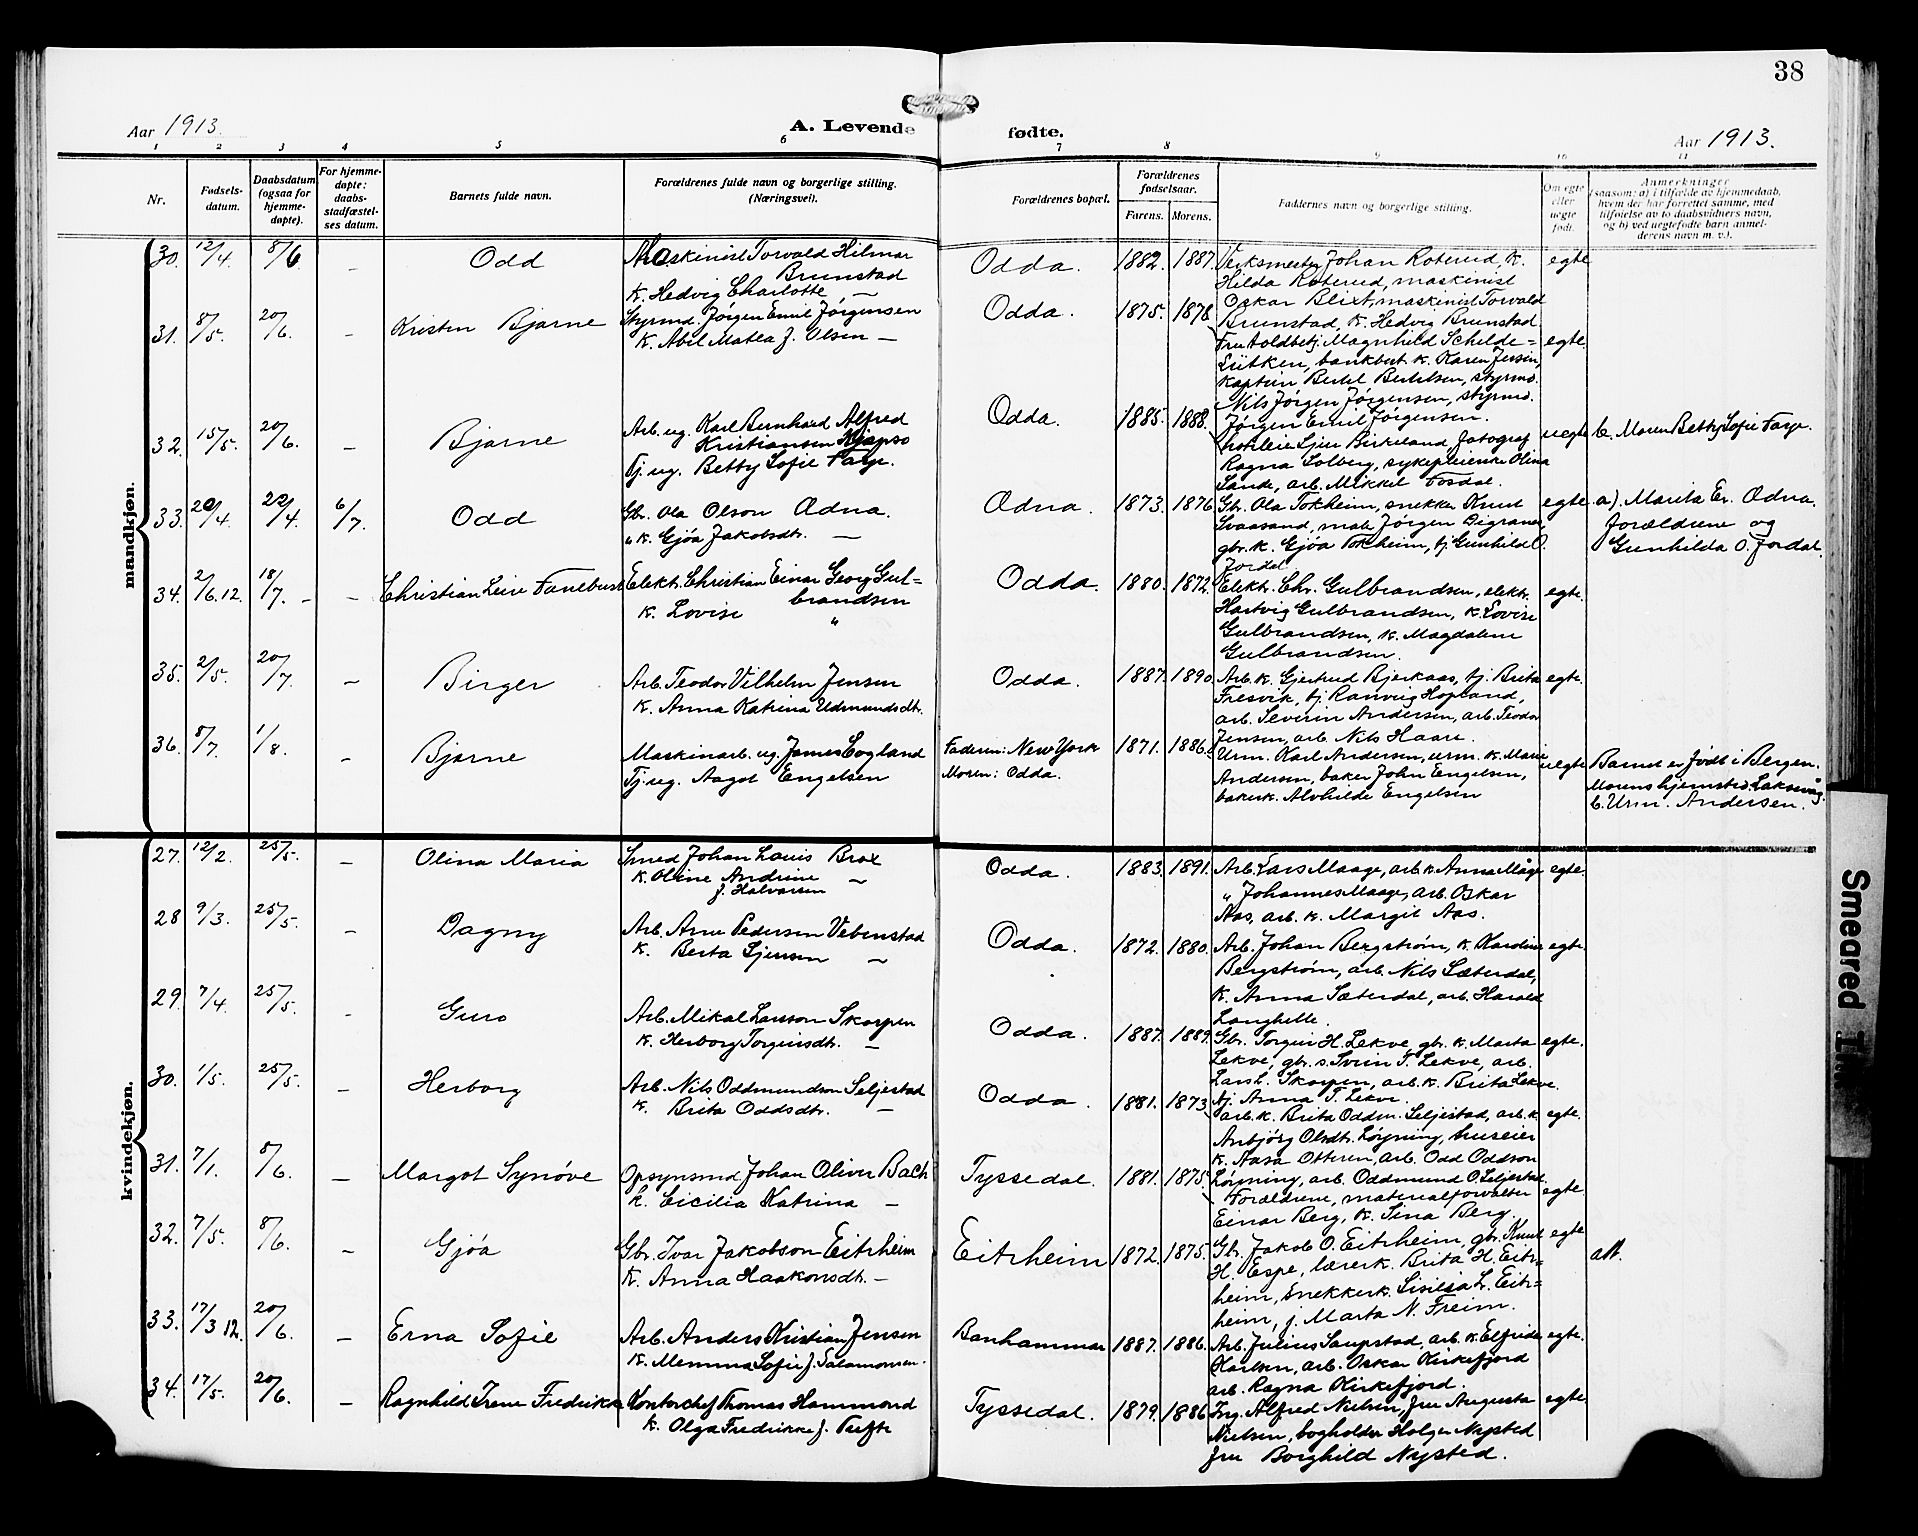 38
Aar 1913.
A. Levende fødte.
Aar 1913.
1 2 3 4 5 6 7 8 9 10 11
Nr.
Fødsels-
datum.
Daabsdatum
(ogsaa for
hjemme-
døpte).
For hjemme-
døpte:
daabs-
stadfæstel-
ses datum.
Barnets fulde navn.
Forældrenes fulde navn og borgerlige stilling.
(Næringsvei).
Forældrenes bopæl.
Forældrenes
fødselsaar.
Farens. Morens.
Faddernes navn og borgerlige stilling.
Om egte
eller
uegte
født.
Anmerkninger
(saasom: a) i tilfælde av hjemmedaab,
hvem der har forrettet samme, med
tilføielse av to daabsvidners navn,
og b) ved uegtefødte barn anmel-
derens navn m. v.).
mandkjøn.
30. 12/4. 8/6 – Odd
Maskinist Torvald Hilmar
Brunstad
k. Hedvig Charlotte —
Odda. 1882. 1887.
Verksmester Johan Roterud, k.
Hilda Roterud, maskinist
Oskar Blixt, maskinist Torvald
Brunstad, k. Hedvig Brunstad
egte
31. 8/5. 20/6. – Kristen Bjarne
Styrmd. Jørgen Emil Jørgensen
k. Abel Matea f. Olsen —
Odda. 1875. 1878.
Fru toldbetj. Magnhild Schilde=
Lütken, bankbest. k. Karen Jensen,
Kaptein Bertel Bertelsen, styrmd.
Nils Jørgen Jørgensen, styrmd.
Jørgen Emil Jørgensen.
egte.
32. 15/5. 20/6. – Bjarne
Arb. ug. Karl Bernhard Alfred
Kristiansen Kjøpso
Tj. ug. Betty Sofie Farje.
Odda. 1885. 1888.
Birkeland, fotograf
Ragna Solberg, sykepleierske Olina
Sande, arb. Mikkel Fosdal.
uegte b. Moren Betty Sofie Farje.
33. 20/4. 22/4. 6/7. Odd
Gbr. Ola Olson Ædna.
" k. Gjøa Jakobsdtr. —
Ædna. 1873. 1876
Gbr. Ola Tokheim, snekker Knut
Svaasand, maler Jørgen Digranes,
gbr. k. Gjøa Tokheim, tj. Gunhild O.
Jordal.
egte a). Marita Er. Ædna.
Forældrene og
Gunhilda O. Jordal.
34. 2/6. 12. 18/7. – – Christian Leire Fanebust
Elekt. Christian Einar Georg Gul-
brandsen
k. Lovise "
Odda. 1880. 1872.
Elekt. Chr. Gulbrandsen, elektr.
Hartvig Gulbrandsen, k. Lovise
Gulbrandsen, k. Magdalene
Gulbrandsen.
egte.
35. 2/5. 20/7. – Birger
Arb. Teodor Vilhelm Jensen
k. Anna Katrina Udmundsdtr.
Odda. 1887. 1890.
Arb. k. Gjertrud Bjerkaas, tj. Brita
Fresvik, tj. Ranveig Hopland,
arb. Severin Andersen, arb. Teodor
Jensen, arb. Nils Haare.
egte.
36. 8/7. 1/8. – Bjarne
Maskinarb. ug. James Cogland
Tj. ug. Aagot Engelsen
Faderen: New York
Moren: Odda.
1871. 1886.
Urm. Karl Andersen, urm. k. Marie
Andersen, baker John Engelsen,
bakerk. Alvhilde Engelsen
uegte
Barnet er født i Bergen.
Morens hjemsted: Laksevåg.
b. Urm. Andersen.
kvindekjøn.
27. 12/2. 25/5. – Olina Maria
Smed Johan Louis Brox
k. Oline Andrine —
f. Halvorsen
Odda. 1883. 1891.
Arb. Lars Maage, arb. k. Anna Måge
" Johannes Maage, arb. Oskar
Aas, arb. k. Margit Aas.
egte.
28 9/3. 25/5. – Dagny
Arb. Arne Pedersen Vebenstad
k. Berta —
Odda. 1872. 1880.
Arb. Johan Bergstrøm, k. Kardine
Bergstrøm, arb. Nils Sæterdal,
k. Anna Sæterdal, arb. Harald
Langhelle.
egte.
29. 7/4. 25/5. - Guro
Arb. Mikal Larsson Skorpen
k. Herborg Torgeirsdtr. —
Odda. 1887. 1889.
Gbr. Torgeir H. Lekve gbr. k. Marta
Lekve, gbr. s. Svein T. Lekve, arb.
Lars L. Skorpen, arb. k. Brita Lekve.
tj. Anna T. Lekve.
egte.
30. 1/5. 25/5. – Herborg
Arb. Nils Oddmundson Seljestad
k. Brita Oddsdtr. —
Odda. 1881. 1873.
arb. k. Brita Oddm. Seljestad, arb. k.
Anbjørg Olsdtr. Løyning, huseier
k. Aasa Otteren, arb. Odd Oddson
Løyning, arb. Oddmund O. Seljestad.
egte.
31. 7/1. 8/6. – Margot Synøve
Opsynsmd Johan Oliver Bach
k. Cicilia Katrina —
Tyssedal. 1881. 1875.
Forældrene, materialforvalter
Einar Berg, k. Sina Berg.
egte.
32. 7/5. 8/6. – Gjøa
Gbr. Ivar Jakobson Eitrheim
k. Anna Haakonsdtr. —
Eitrheim 1872. 1875.
Gbr. Jakob O. Eitrheim, gbr. Knut
H. Espe, lærerk. Brita H. Eitr=
heim, snekkerk. Sisilja L. Eitr=
heim, j. Marta N. Freim.
egte att.
33. 17/3 12. 20/6. – Erna Sofie
Arb. Anders Kristian Jensen
k. Memma Sofie f. Salamonsen.
Banhammar 1887. 1886.
Arb. Julius Saupstad, arb. k. Elfrida
Karlsen, arb. Oskar Kirkefjord
arb. Ragna Kirkefjord.
egte.
34. 17/5. 20/6. – Ragnhild Irene Fredrikke
Kontorchef Thomas Hammond
k. Olga Fredrikke f. Tufte
Tyssedal. 1879. 1886
Ing. Alfred Nielsen, fru Augusta
Nielsen, bogholder Holger Nysted
fru Borghild Nysted.
egte.
Smeared